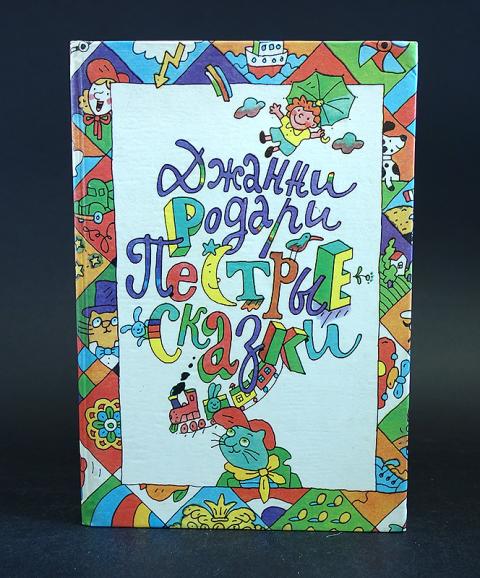 Джанни
Родари
Пестрые
сказки